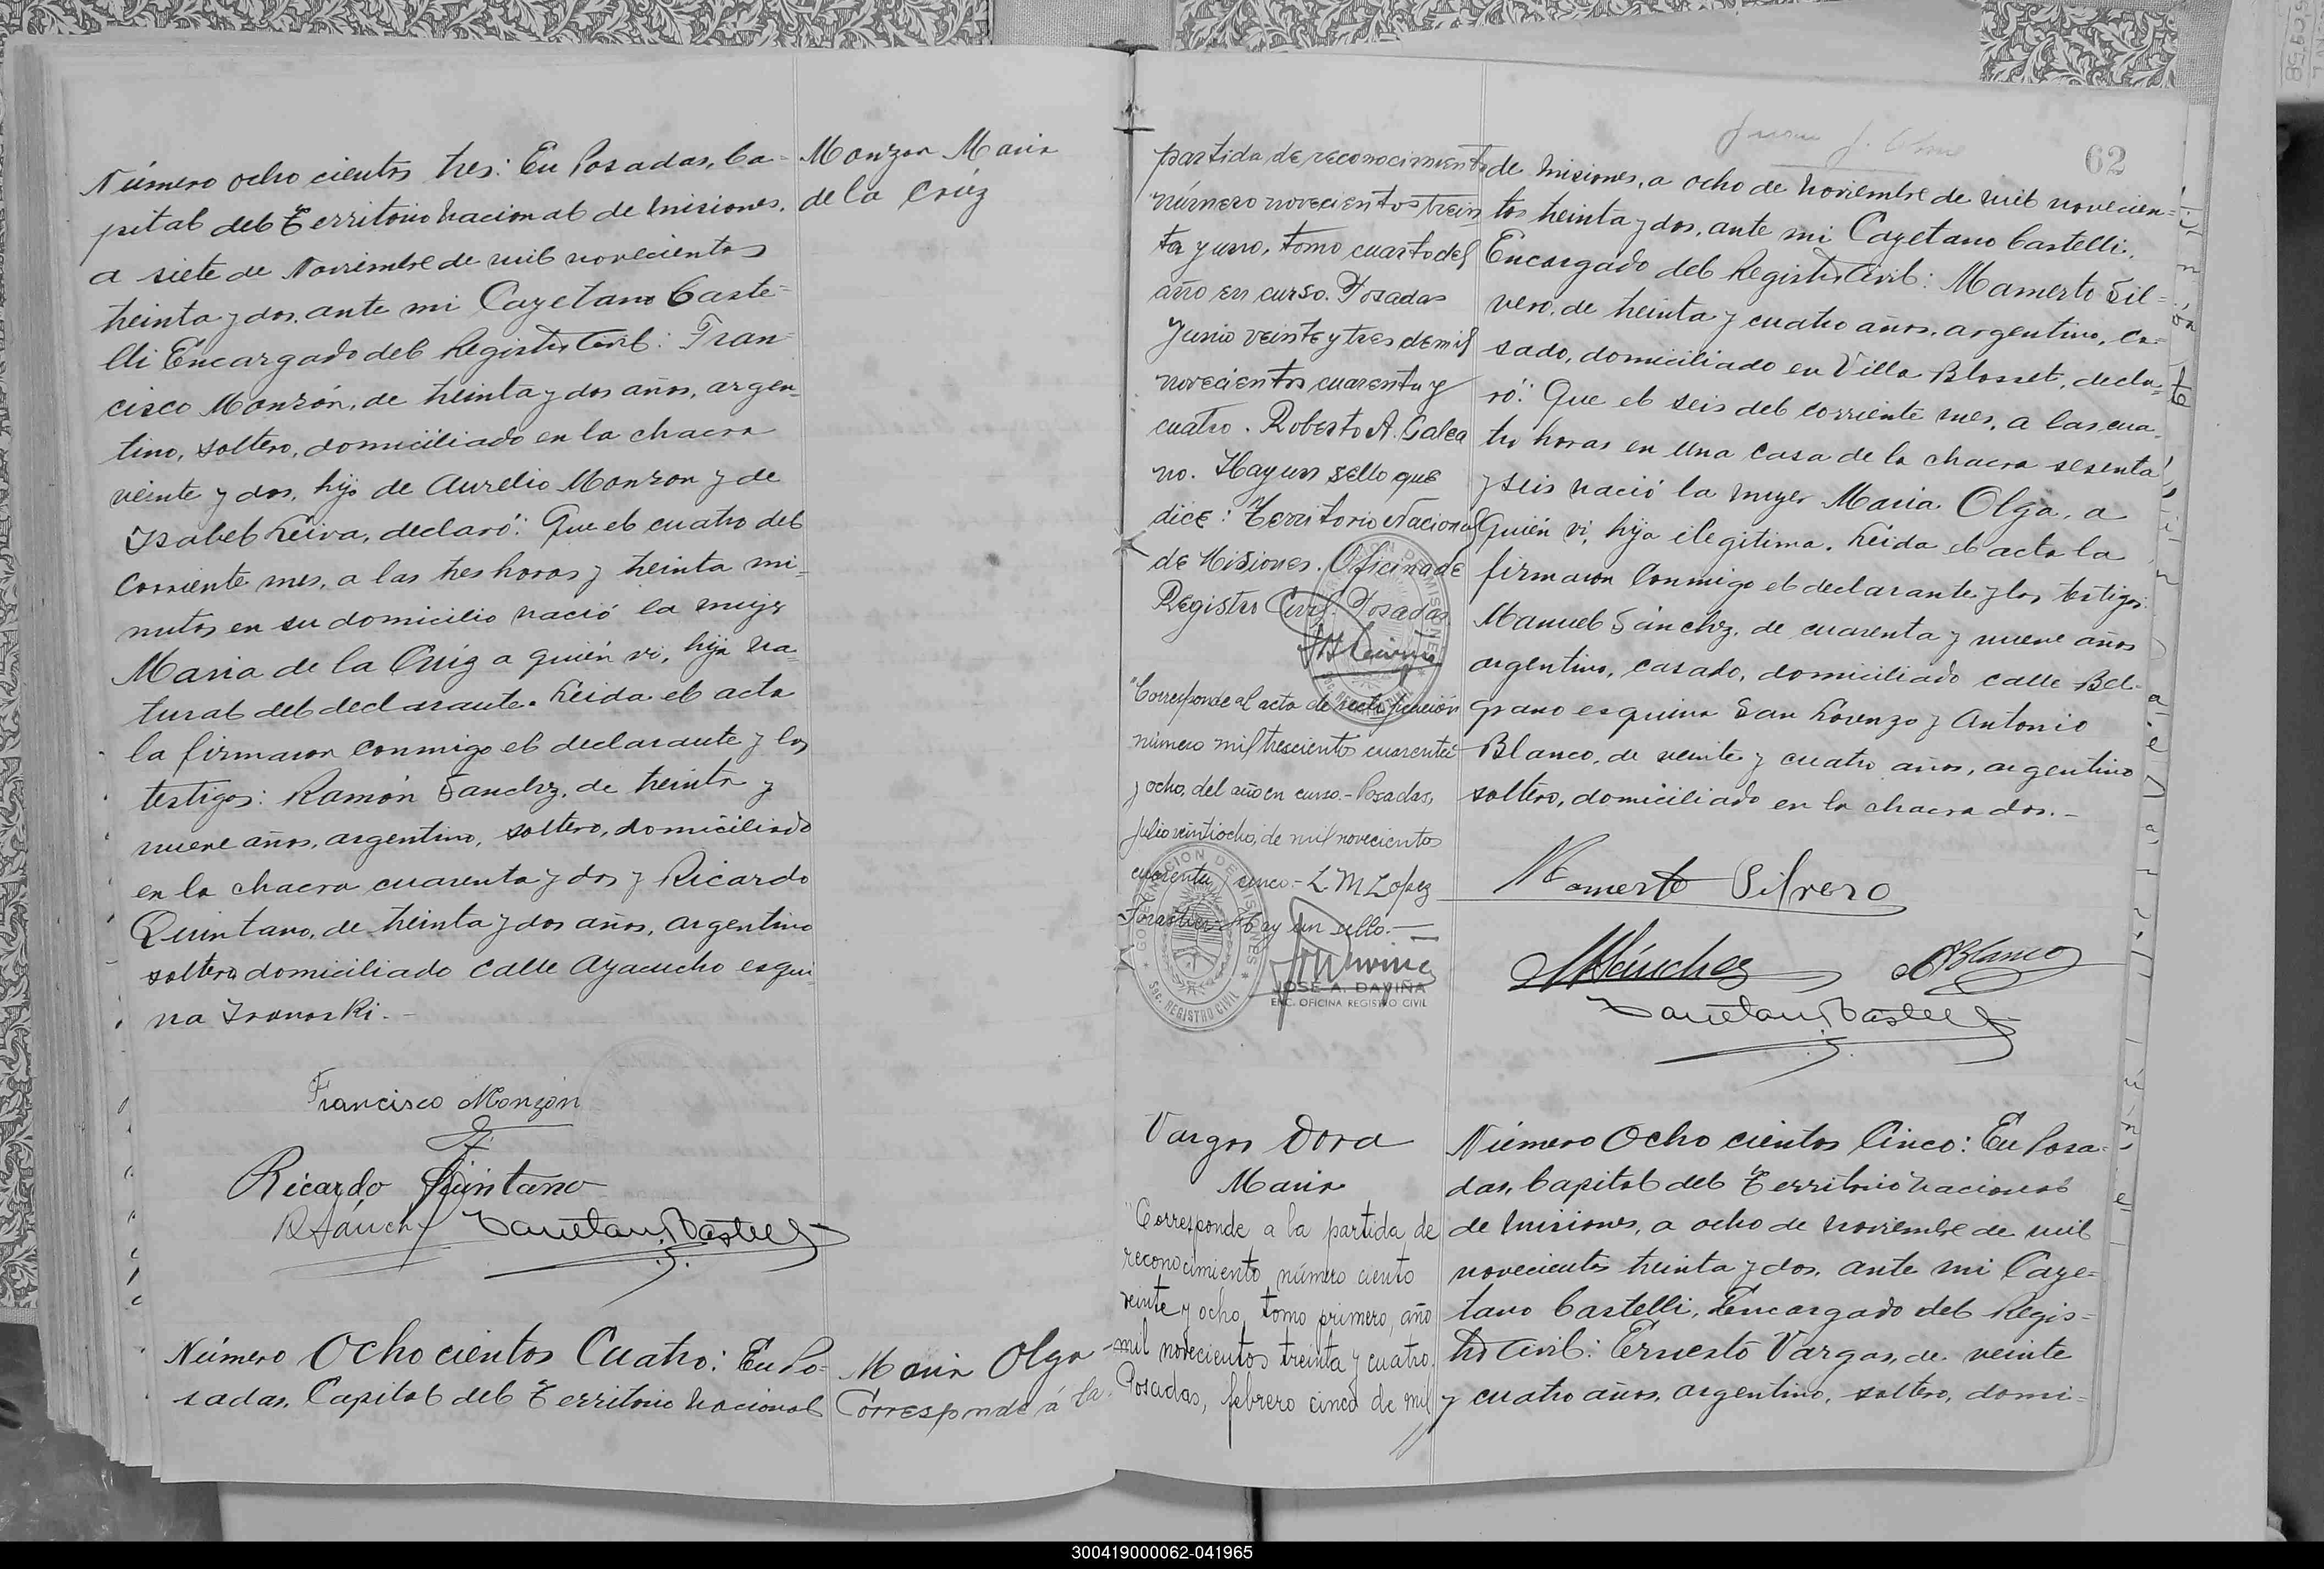 Número ocho cientos tres: En Posadas, Ca=
pital del Territorio Nacional de Misiones,
a siete de Noviembre de mil novecientos
treinta y dos, ante mi Cayetano Caste=
lli Encargado del Registro Civil: Fran=
cisco Monzón, de treinta y dos años, argen=
tino, soltero, domiciliado en la chacra
veinte y dos, hijo de Aurelio Monzon y de
Isabel Leiva, declaró: Que el cuatro del
corriente mes, a las tres horas y treinta mi=
nutos en su domicilio nació la mujer
Maria de la Crúz a quién vi, hija na=
tural del declarante. Leida el acta
la firmaron conmigo el declarante y los
testigos: Ramón Sanchz, de treinta y
nueve años, argentino, soltero, domiciliado
en la chacra cuarenta y dos y Ricardo
Quintano, de treinta y dos años, argentino
soltero domiciliado calle Ayacucho esqui=
na Iranoski.-
Monzon Maria
de la Crúz
Francisco Monzón
Ricardo Quintano
RSánch Cayetano Castelli
Número Ocho cientos Cuatro: En Po=
sadas, Capital del Territorio Nacional
Maria Olga
Corresponde á la
partida de reconocimiento
número novecientos trein
ta y uno, tomo cuarto del
año en curso. Posadas
Junio veinte y tres de mil
novecientos cuarenta y
cuatro. Roberto A. Galea
no. Hay un sello que
dice: Territorio Nacional
de Misiones. Oficina de
Registro Civil. Posadas
"Corresponde al acta de rectificación
número mil trescientos cuarenta
y ocho, del año en curso.- Posadas,
Julio veintiocho, de mil novecientos
cuarenta y cinco.- L. M Lopez
Forastier. Hay un sello.-
GOBERNACION DE MISIONES
Sec. REGISTRO CIVIL
JOSÉ A. DAVIÑA
ENC. OFICINA REGISTRO CIVIL
62
de Misiones, a ocho de Noviembre de mil novecien=
tos treinta y dos, ante mi Cayetano Castelli,
Encargado del Registro Civil: Mamerto Sil=
vero, de treinta y cuatro años, argentino, ca=
sado, domiciliado en Villa Blosset, decla=
ró: Que el seis del corriente mes, a las cua=
tro horas en una casa de la chacra sesenta
y seis nació la mujer Maria Olga, a
quién vi, hija ilegitima. Leida el acta la
firmaron conmigo el declarante y los testigos:
Manuel Sánchz, de cuarenta y nueve años
argentino, casado, domiciliado calle Bel=
grano esquina San Lorenzo y Antonio
Blanco, de veinte y cuatro años, argentino
soltero, domiciliado en la chacra dos.-
Mamerto Silvero
MSánchez ABlanco
Cayetano Castelli
Vargas Dora
Maria
"Corresponde a la partida de
reconocimiento número ciento
veinte y ocho, tomo primero, año
mil novecientos treinta y cuatro.
Posadas, febrero cinco de mil
Número Ocho cientos Cinco: En Posa=
das, Capital del Territorio Nacional
de Misiones, a ocho de Noviembre de mil
novecientos treinta y dos, ante mi Caye=
tano Castelli, Encargado del Regis=
tro Civil: Ernesto Vargas, de veinte
y cuatro años, argentino, soltero, domi=
300419000062-041965